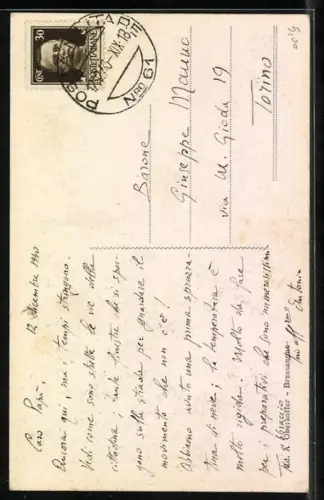 12 Dicembre 1940
Caro Papà,
Ancora qui, ma i tempi stringono.
Vedi come sono strette le vie della
cittadina; tante finestre che si spor-
gono sulla strada per guardare il
movimento che non c'è!
Abbiamo avuto una prima spruzza-
tina di neve; la temperatura è
molto rigida. Molto da fare
per i preparativi che sono numerosissimi
Ti abbraccio
tuo aff.mo
Antonio
Barone
Giuseppe Manno
via M. Gioda 19
Torino
30 CENT
POSTA
NRO 61
Oberhofer - Bressanone